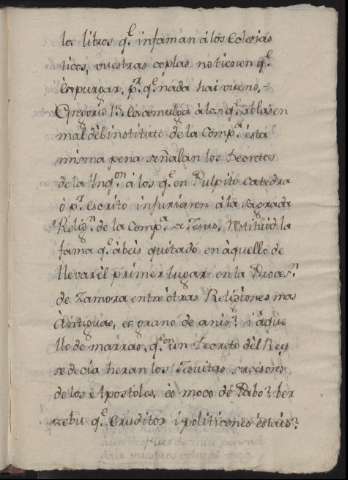 ta libros q.e infaman á los Eclesiás
ticos, vuestras coplas no ticnen q.e
expurgar, p.r q.e nada hai vueno,
Gregorio 13. excomulga á los q.e ablasen
mal del instituto de la Comp.a esta
misma pena señalan los Decretos
de la Inq.on á los q.e en Pulpito Catedra
ó p.r escrito injuriaren á la sagrada
Relig.n de la Comp.a de Jesus, restituid la
fama q.e abeis quitado en aquello de
llevar el primer lugar en la Proces.n
de Zamora entre otras Religiones mas
Antiguas, es grano de anis? i aque
llo de marras, q.e en un Decreto del Rey
se decia heran los Jesuitas succesores
de los Apostoles, es moco de Pabo?
q.e eruditos i politicones estais?